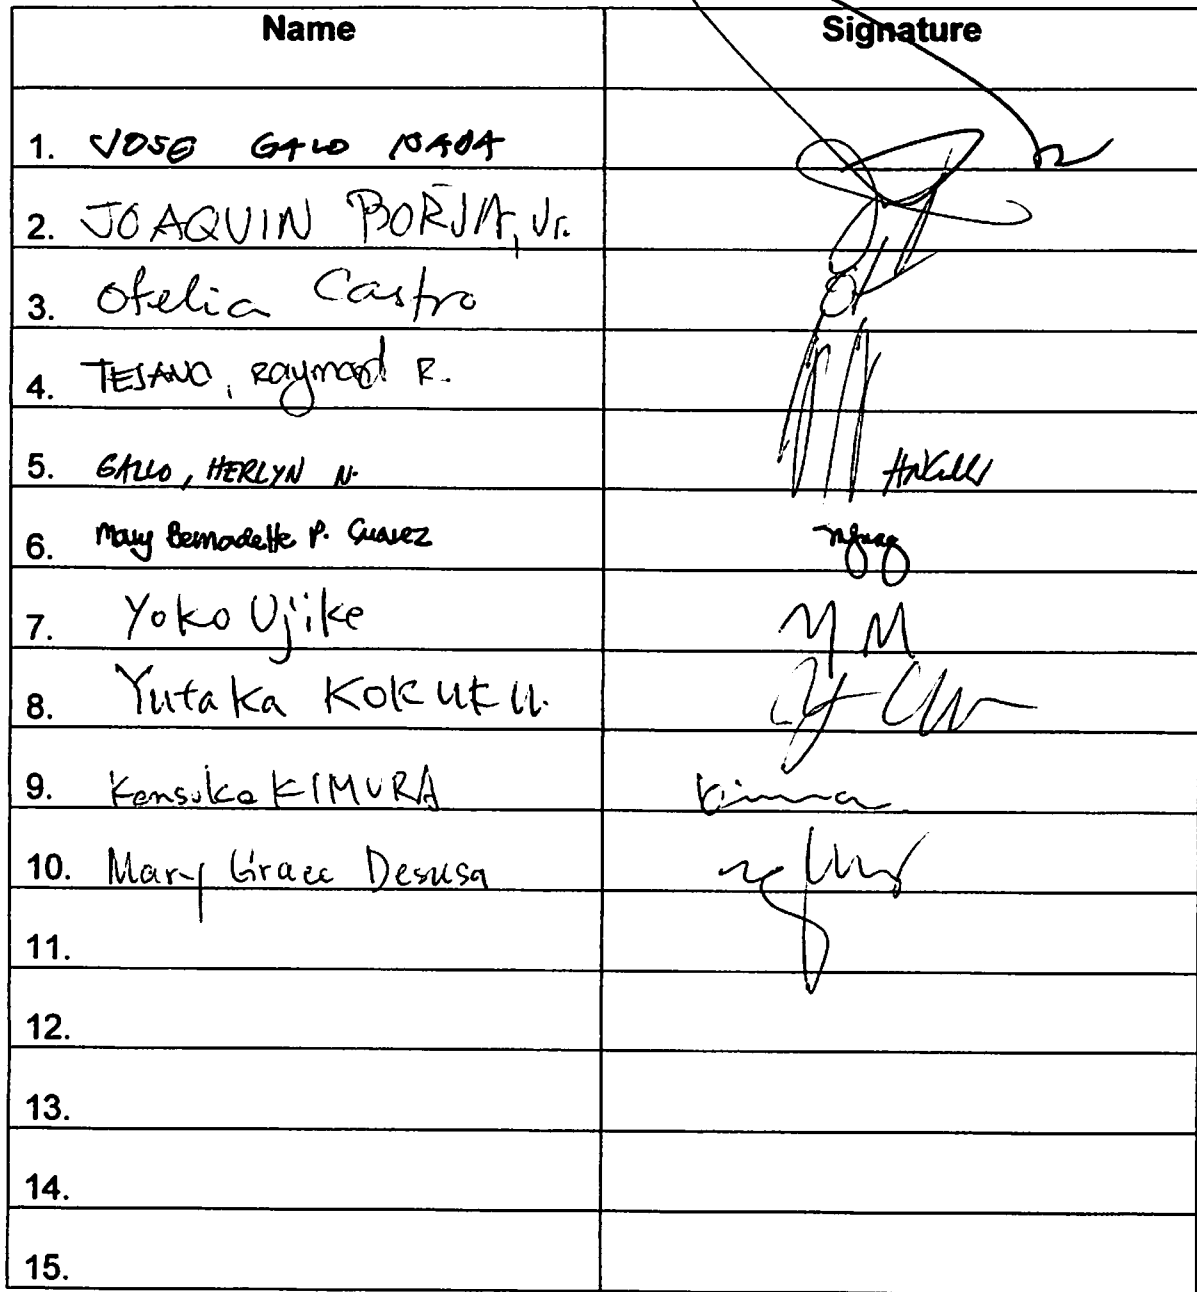 Name Signature
1. JOSE GALO NADA
2. JOAQUIN BORJA, Jr.
3. Ofelia Castro
4. TEJANO, Raymond R.
5. GALLO, HERLYN N.
6. Mary Bernadette P. Suarez
7. Yoko Ujike
8. Yutaka KOKUFU.
9. Kensuke KIMURA Kimura
10. Mary Grace Desusa
11.
12.
13.
14.
15.